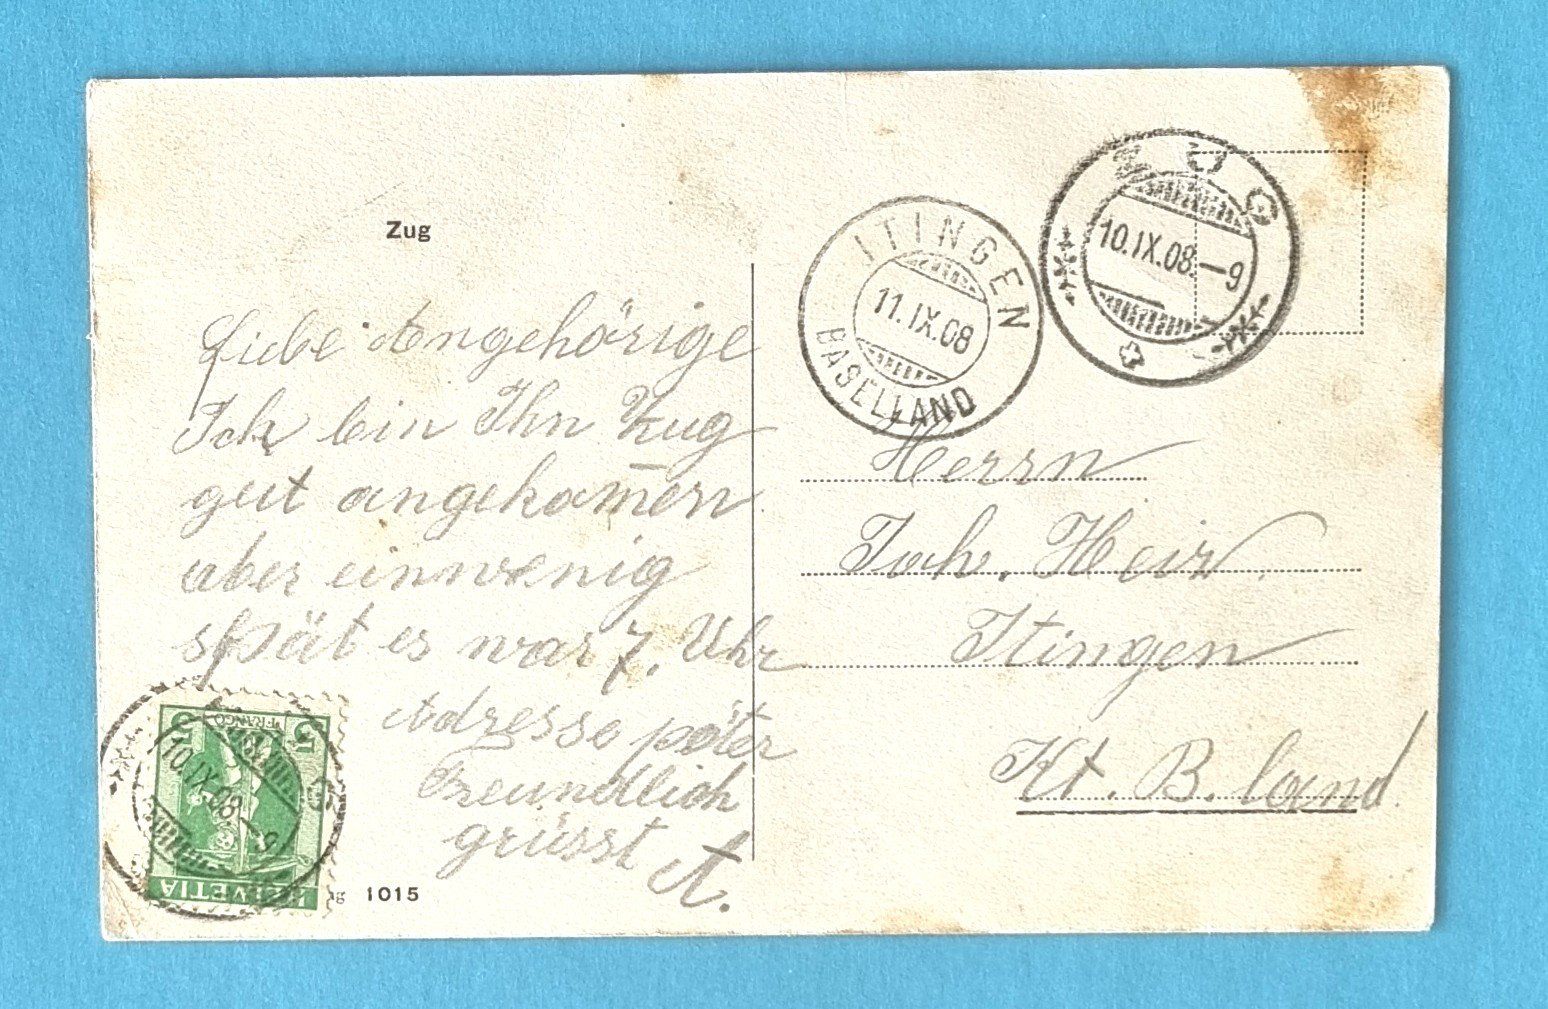 Zug
Liebe Angehörige
Ich bin Ihn Zug
gut angekom̅en
aber einwenig
spät es war 7. Uhr
Adresse später
Freundlich
grüsst A.
1015
5 FRANCO 5
HELVETIA
10.IX.08.–9
ITINGEN
11.IX.08
BASELLAND
ZUG
10.IX.08.–9
Herrn
Joh.
Itingen
Kt. B. land